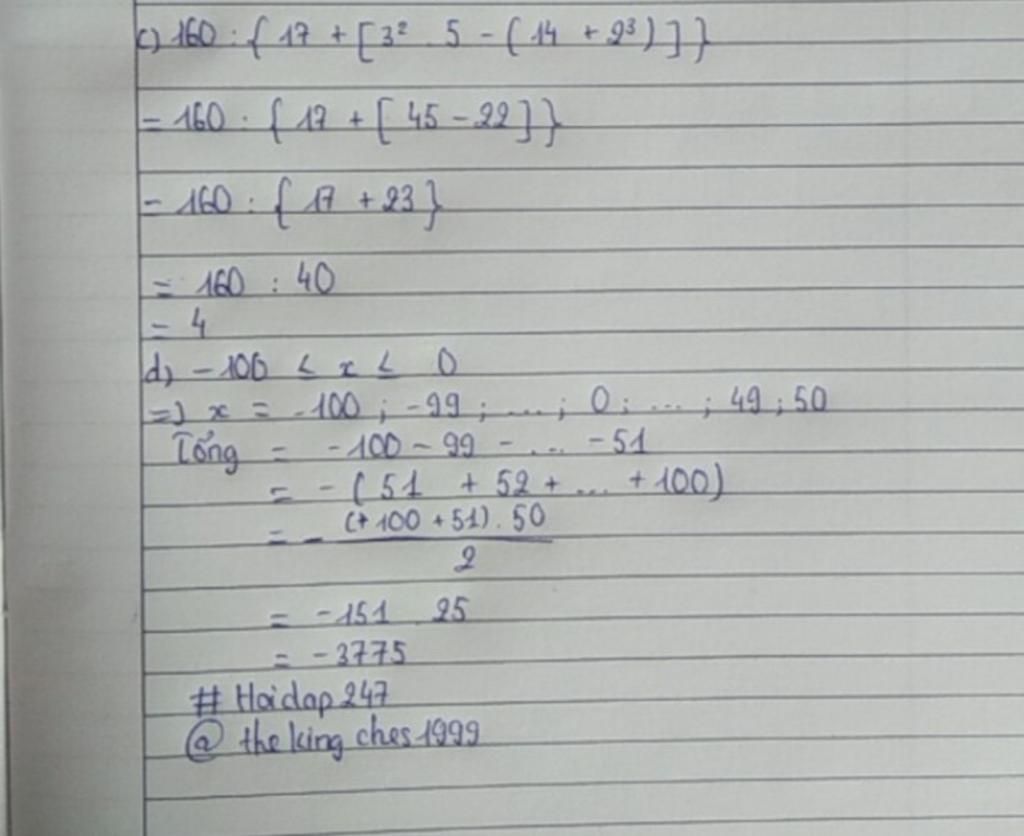 c) 160 : { 17 + [ 3² . 5 - ( 14 + 2³ ) ] }
= 160 : { 17 + [ 45 - 22 ] }
= 160 : { 17 + 23 }
= 160 : 40
= 4
d) -100 ≤ x ≤ 0
=) x = -100 ; -99 ; ... ; 0 ; ... ; 49 ; 50
Tổng = -100 - 99 - ... -51
= - ( 51 + 52 + ... + 100 )
= - (+100 + 51) . 50
2
= -151 25
= -3775
# Hoidap247
@ the king ches1999